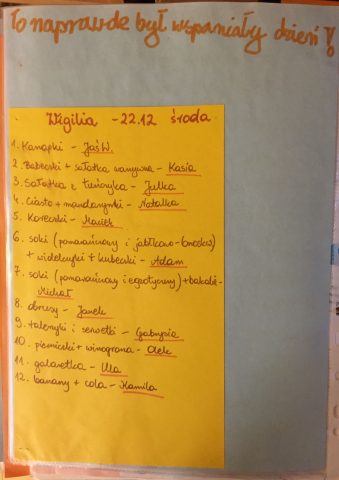 To naprawdę był wspaniały dzień!
Wigilia - 22.12 środa
1. Kanapki - Jaś W.
2. Babeczki + sałatka warzywna - Kasia
3. Sałatka z tuńczyka - Julka
4. Ciasto + mandarynki - Natalka
5. Koreczki - Maciek
6. soki (pomarańczowy i jabłkowo-
+ widelczyki + kubeczki - Adam
7. soki (pomarańczowy i egzotyczny) + bakalie -
Michał
8. obrusy - Janek
9. talerzyki i serwetki - Gabrysia
10. pierniczki + winogrona - Olek
11. galaretka - Ula
12. banany + cola - Kamila